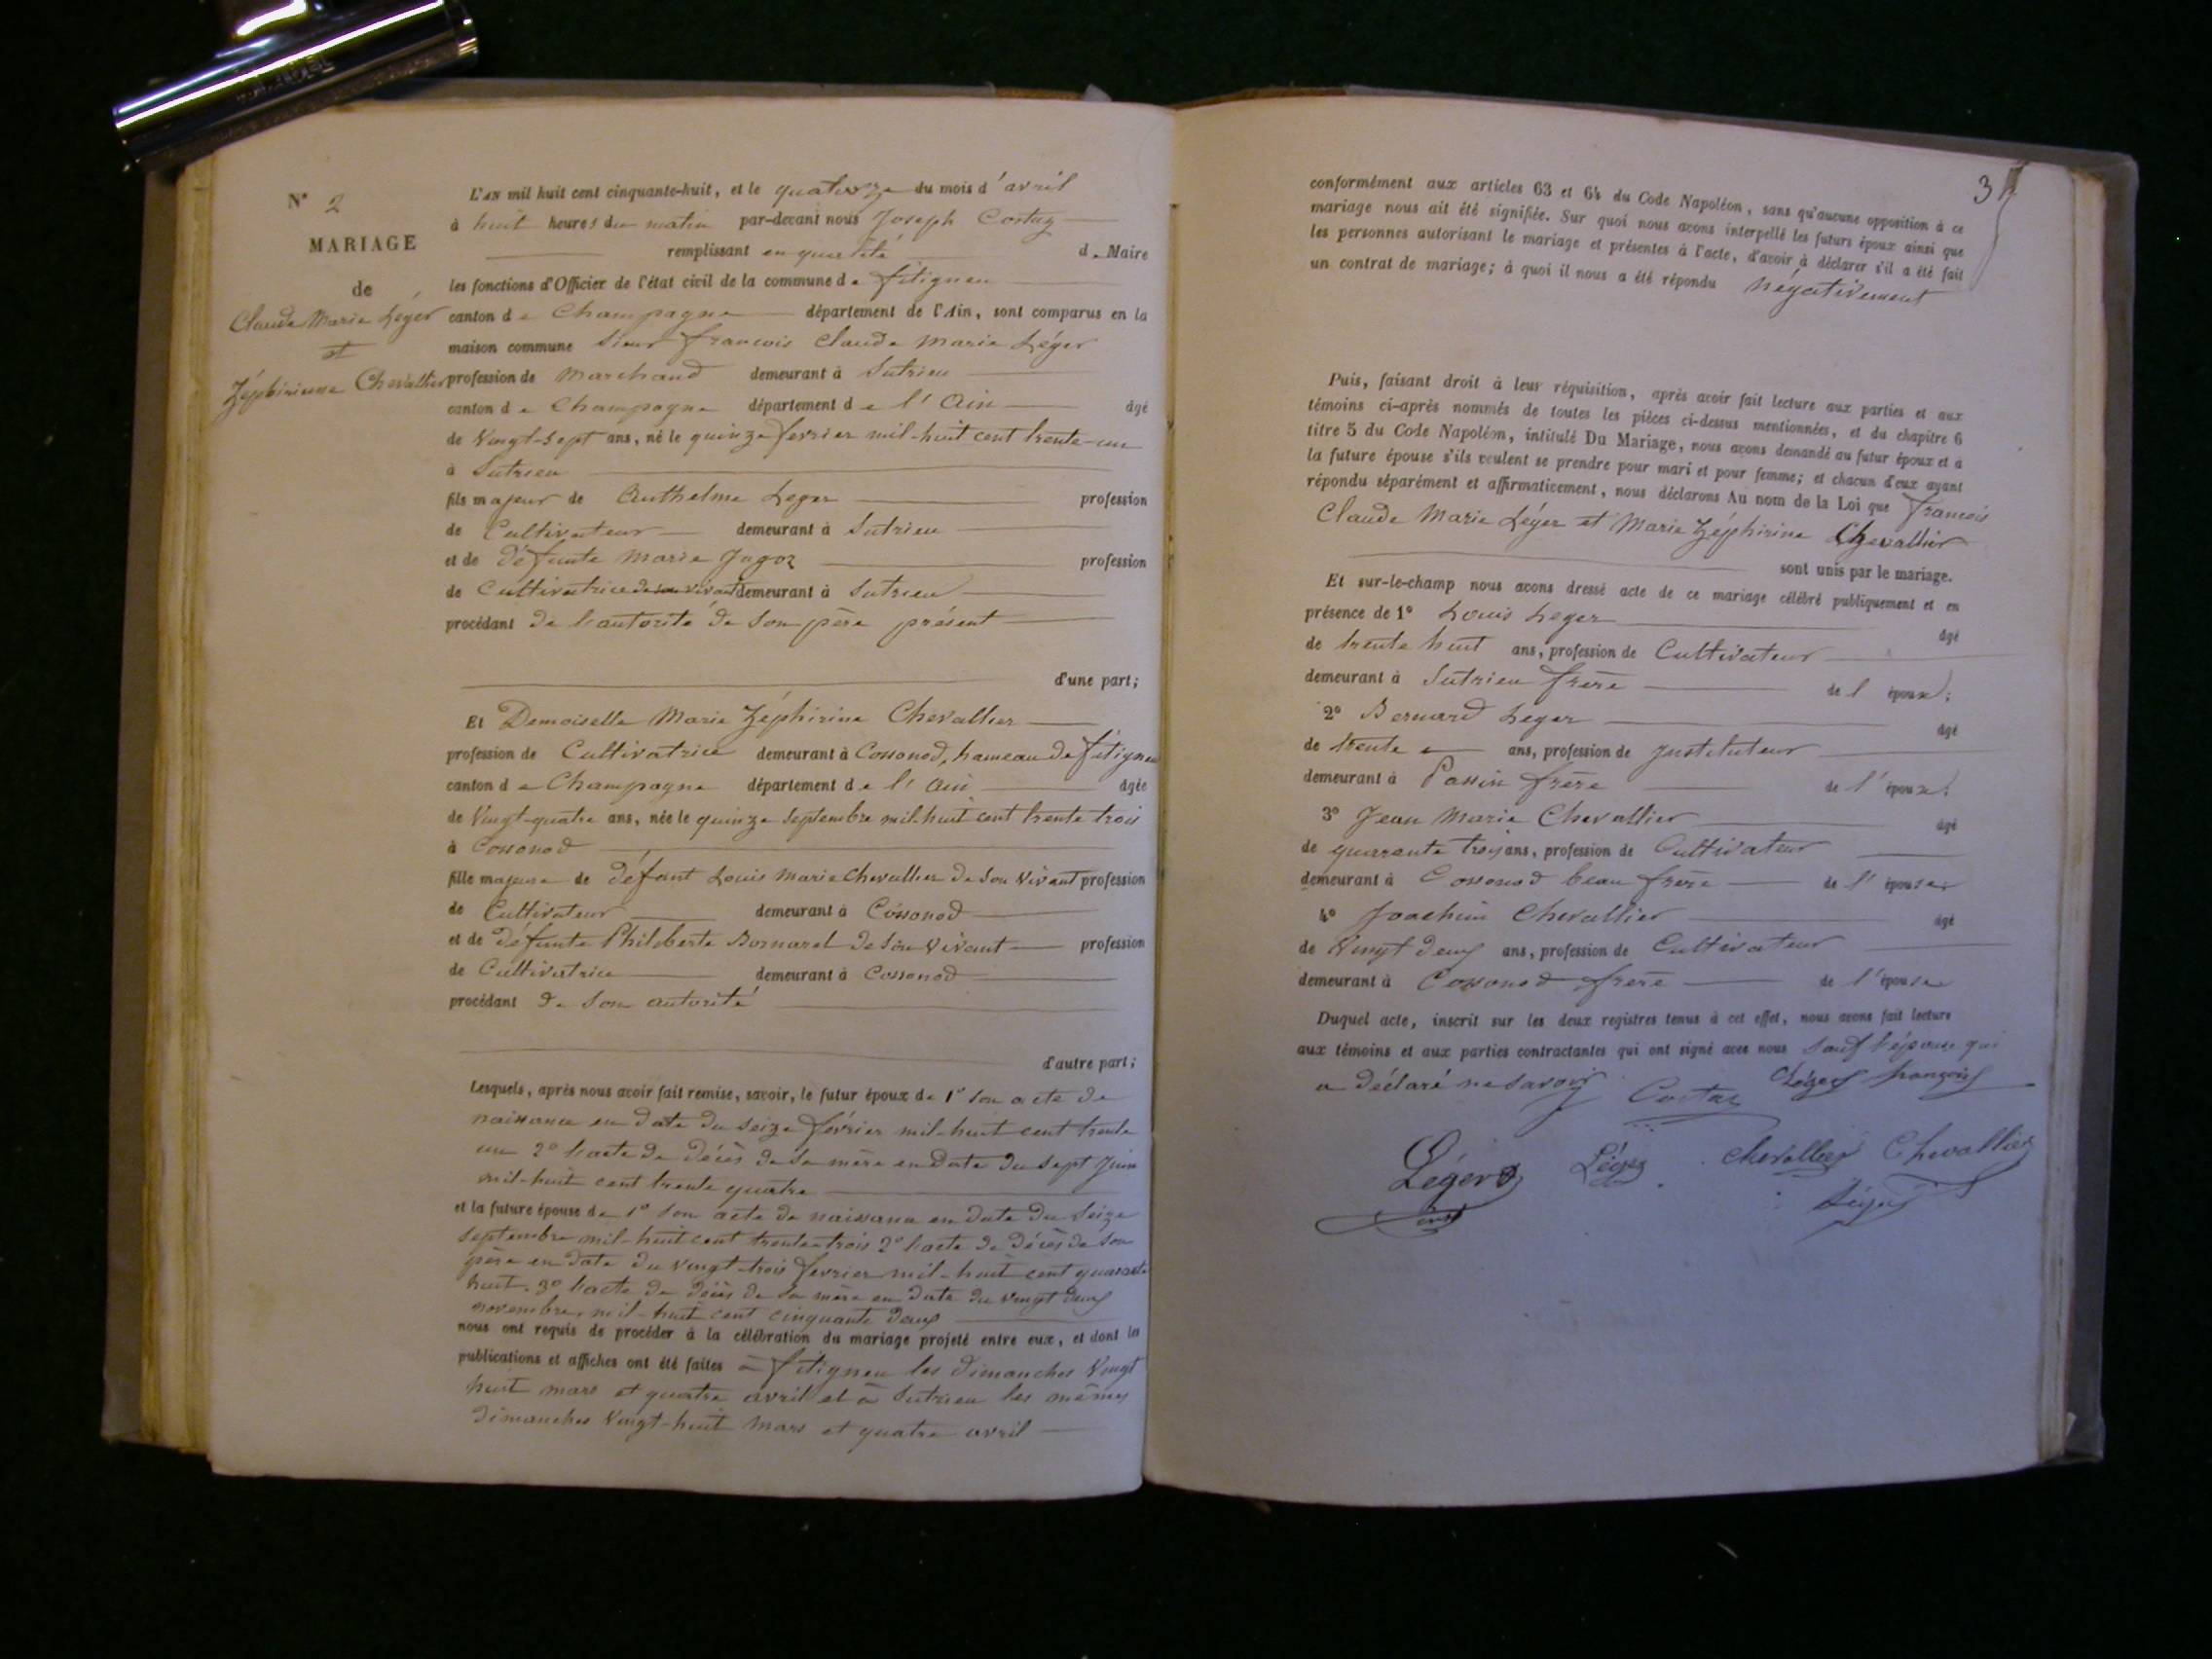 N° 2
MARIAGE
de
Claude Marie Léger
et
Zéphirienne Chevallier
L'AN mil huit cent cinquante-huit, et le quatorze du mois d'avril
à huit heures du matin par-devant nous Joseph Costaz
remplissant en qualité de Maire
les fonctions d'Officier de l'état civil de la commune de fitignieu
canton de Champagne département de l'Ain, sont comparus en la
maison commune Sieur françois Claude Marie Léger
profession de Marchand demeurant à Sutrieu
canton de Champagne département de l'Ain âgé
de Vingt-sept ans, né le quinze fevrier mil-huit cent trente-un
à Sutrieu
fils majeur de Anthelme Leger profession
de Cultivateur demeurant à Sutrieu
et de défunte Marie Jagoz profession
de Cultivatrice de son vivant demeurant à Sutrieu
procédant de l'autorité de son père présent
d'une part;
Et Demoiselle Marie Zéphirine Chevallier
profession de Cultivatrice demeurant à Cossonod, hameau de fitignieu
canton de Champagne département de l'Ain âgée
de Vingt-quatre ans, née le quinze septembre mil-huit cent trente trois
à Cossonod
fille majeure de défunt Louis Marie Chevallier de son vivant profession
de Cultivateur demeurant à Cossonod
et de défunte Philiberte Bornarel de son vivant profession
de Cultivatrice demeurant à Cossonod
procédant de son autorité
d'autre part;
Lesquels, après nous avoir fait remise, savoir, le futur époux de 1° son acte de
naissance en date du seize février mil-huit cent trente
un 2° l'acte de décès de sa mère en date du sept juin
mil-huit cent trente quatre
et la future épouse de 1° son acte de naissance en date du seize
septembre mil-huit cent trente-trois 2° l'acte de décès de son
père en date du vingt-trois fevrier mil-huit cent quarante
huit. 3° l'acte de décès de sa mère en date du vingt deux
novembre mil-huit cent cinquante deux
nous ont requis de procéder à la célébration du mariage projeté entre eux, et dont les
publications et affiches ont été faites à fitignieu les dimanches Vingt
huit mars et quatre avril et à Sutrieu les mêmes
dimanches Vingt-huit mars et quatre avril
3
conformément aux articles 63 et 64 du Code Napoléon, sans qu'aucune opposition à ce
mariage nous ait été signifiée. Sur quoi nous avons interpellé les futurs époux ainsi que
les personnes autorisant le mariage et présentes à l'acte, d'avoir à déclarer s'il a été fait
un contrat de mariage; à quoi il nous a été répondu négativement
Puis, faisant droit à leur réquisition, après avoir fait lecture aux parties et aux
témoins ci-après nommés de toutes les pièces ci-dessus mentionnées, et du chapitre 6
titre 5 du Code Napoléon, intitulé Du Mariage, nous avons demandé au futur époux et à
la future épouse s'ils veulent se prendre pour mari et pour femme; et chacun d'eux ayant
répondu séparément et affirmativement, nous déclarons Au nom de la Loi que francois
Claude Marie Léger et Marie Zéphirine Chevallier
sont unis par le mariage.
Et sur-le-champ nous avons dressé acte de ce mariage célébré publiquement et en
présence de 1° Louis Leger âgé
de trente huit ans, profession de Cultivateur
demeurant à Sutrieu frère de l'époux;
2° Bernard Leger âgé
de trente ans, profession de Instituteur
demeurant à Passin frère de l'époux;
3° Jean Marie Chevallier âgé
de quarante trois ans, profession de Cultivateur
demeurant à Cossonod beau frère de l'épouse
4° Joachim Chevallier âgé
de Vingt deux ans, profession de Cultivateur
demeurant à Cossonod frère de l'épouse
Duquel acte, inscrit sur les deux registres tenus à cet effet, nous avons fait lecture
aux témoins et aux parties contractantes qui ont signé avec nous sauf l'épouse qui
a déclaré ne savoir Costaz Léger françois
Léger Léger Chevallier Chevallier
Léger